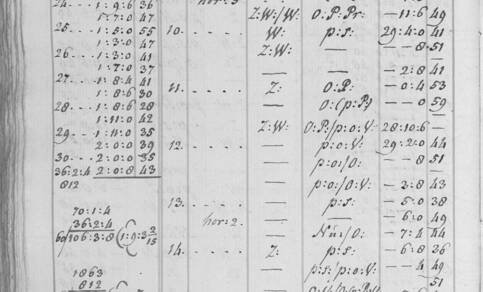 24 - - - 1 : 9 : 6 36
1 : 7 : 0 47
25 - - - 1 : 5 : 0 55
1 : 3 : 0 47
26 - - - 1 : 3 : 0 41
1 : 7 : 0 37
27 - - - 1 : 8 : 4 41
1 : 8 : 6 30
28 - - - 1 : 8 : 6 28
1 : 11 : 0 42
29 - - - 1 : 11 : 0 35
2 : 0 : 0 39
30 - - - 2 : 0 : 0 35
36 : 2 : 4 2 : 0 : 8 43
812
70 : 1 : 4
36 : 2 : 4
60 106 : 3 : 8
1863
812
hor : 3
Z : W : / W : O : P : Pr : — 11 : 6 49
10. W : p : s : 29 : 4 : 0 41
Z : W : — — 8 51
— — — 2 : 8 41
11. Z : O : P : — 0 : 4 53
— O : (p : P) — 0 59
Z : W : O : P : / p : o : V : 28 : 10 : 6 —
12. — p : o : V : 29 : 2 : 0 44
— p : o : / O : — 8 51
— p : o : / O : V : — 3 : 8 43
13. — p : s : — 5 : 0 38
hor : 2. — — — 6 : 0 49
— — 7 : 4 44
14. Z : p : s : — 6 : 8 36
— p : s : / p : o : V : — 4 49
51